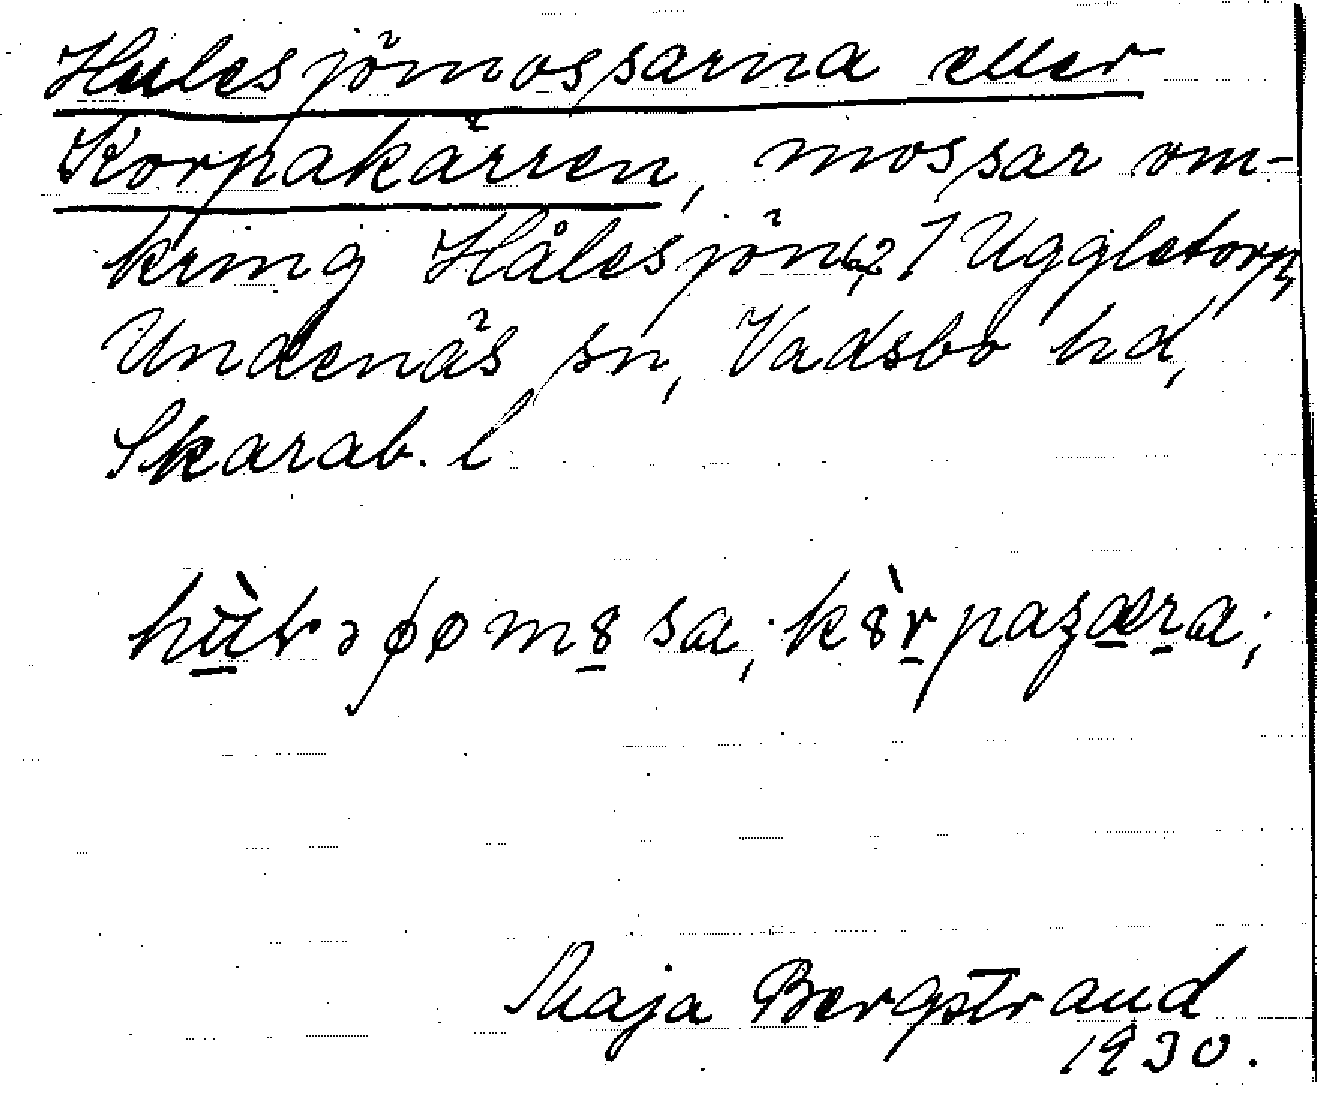 Hulesjömossarna eller
Korpakärren, mossar om-
kring Hålesjön, 1 Uggletorp,
Undenäs sn, Vadsbo hd,
Skarab. l
Maja Bergstrand
1930.